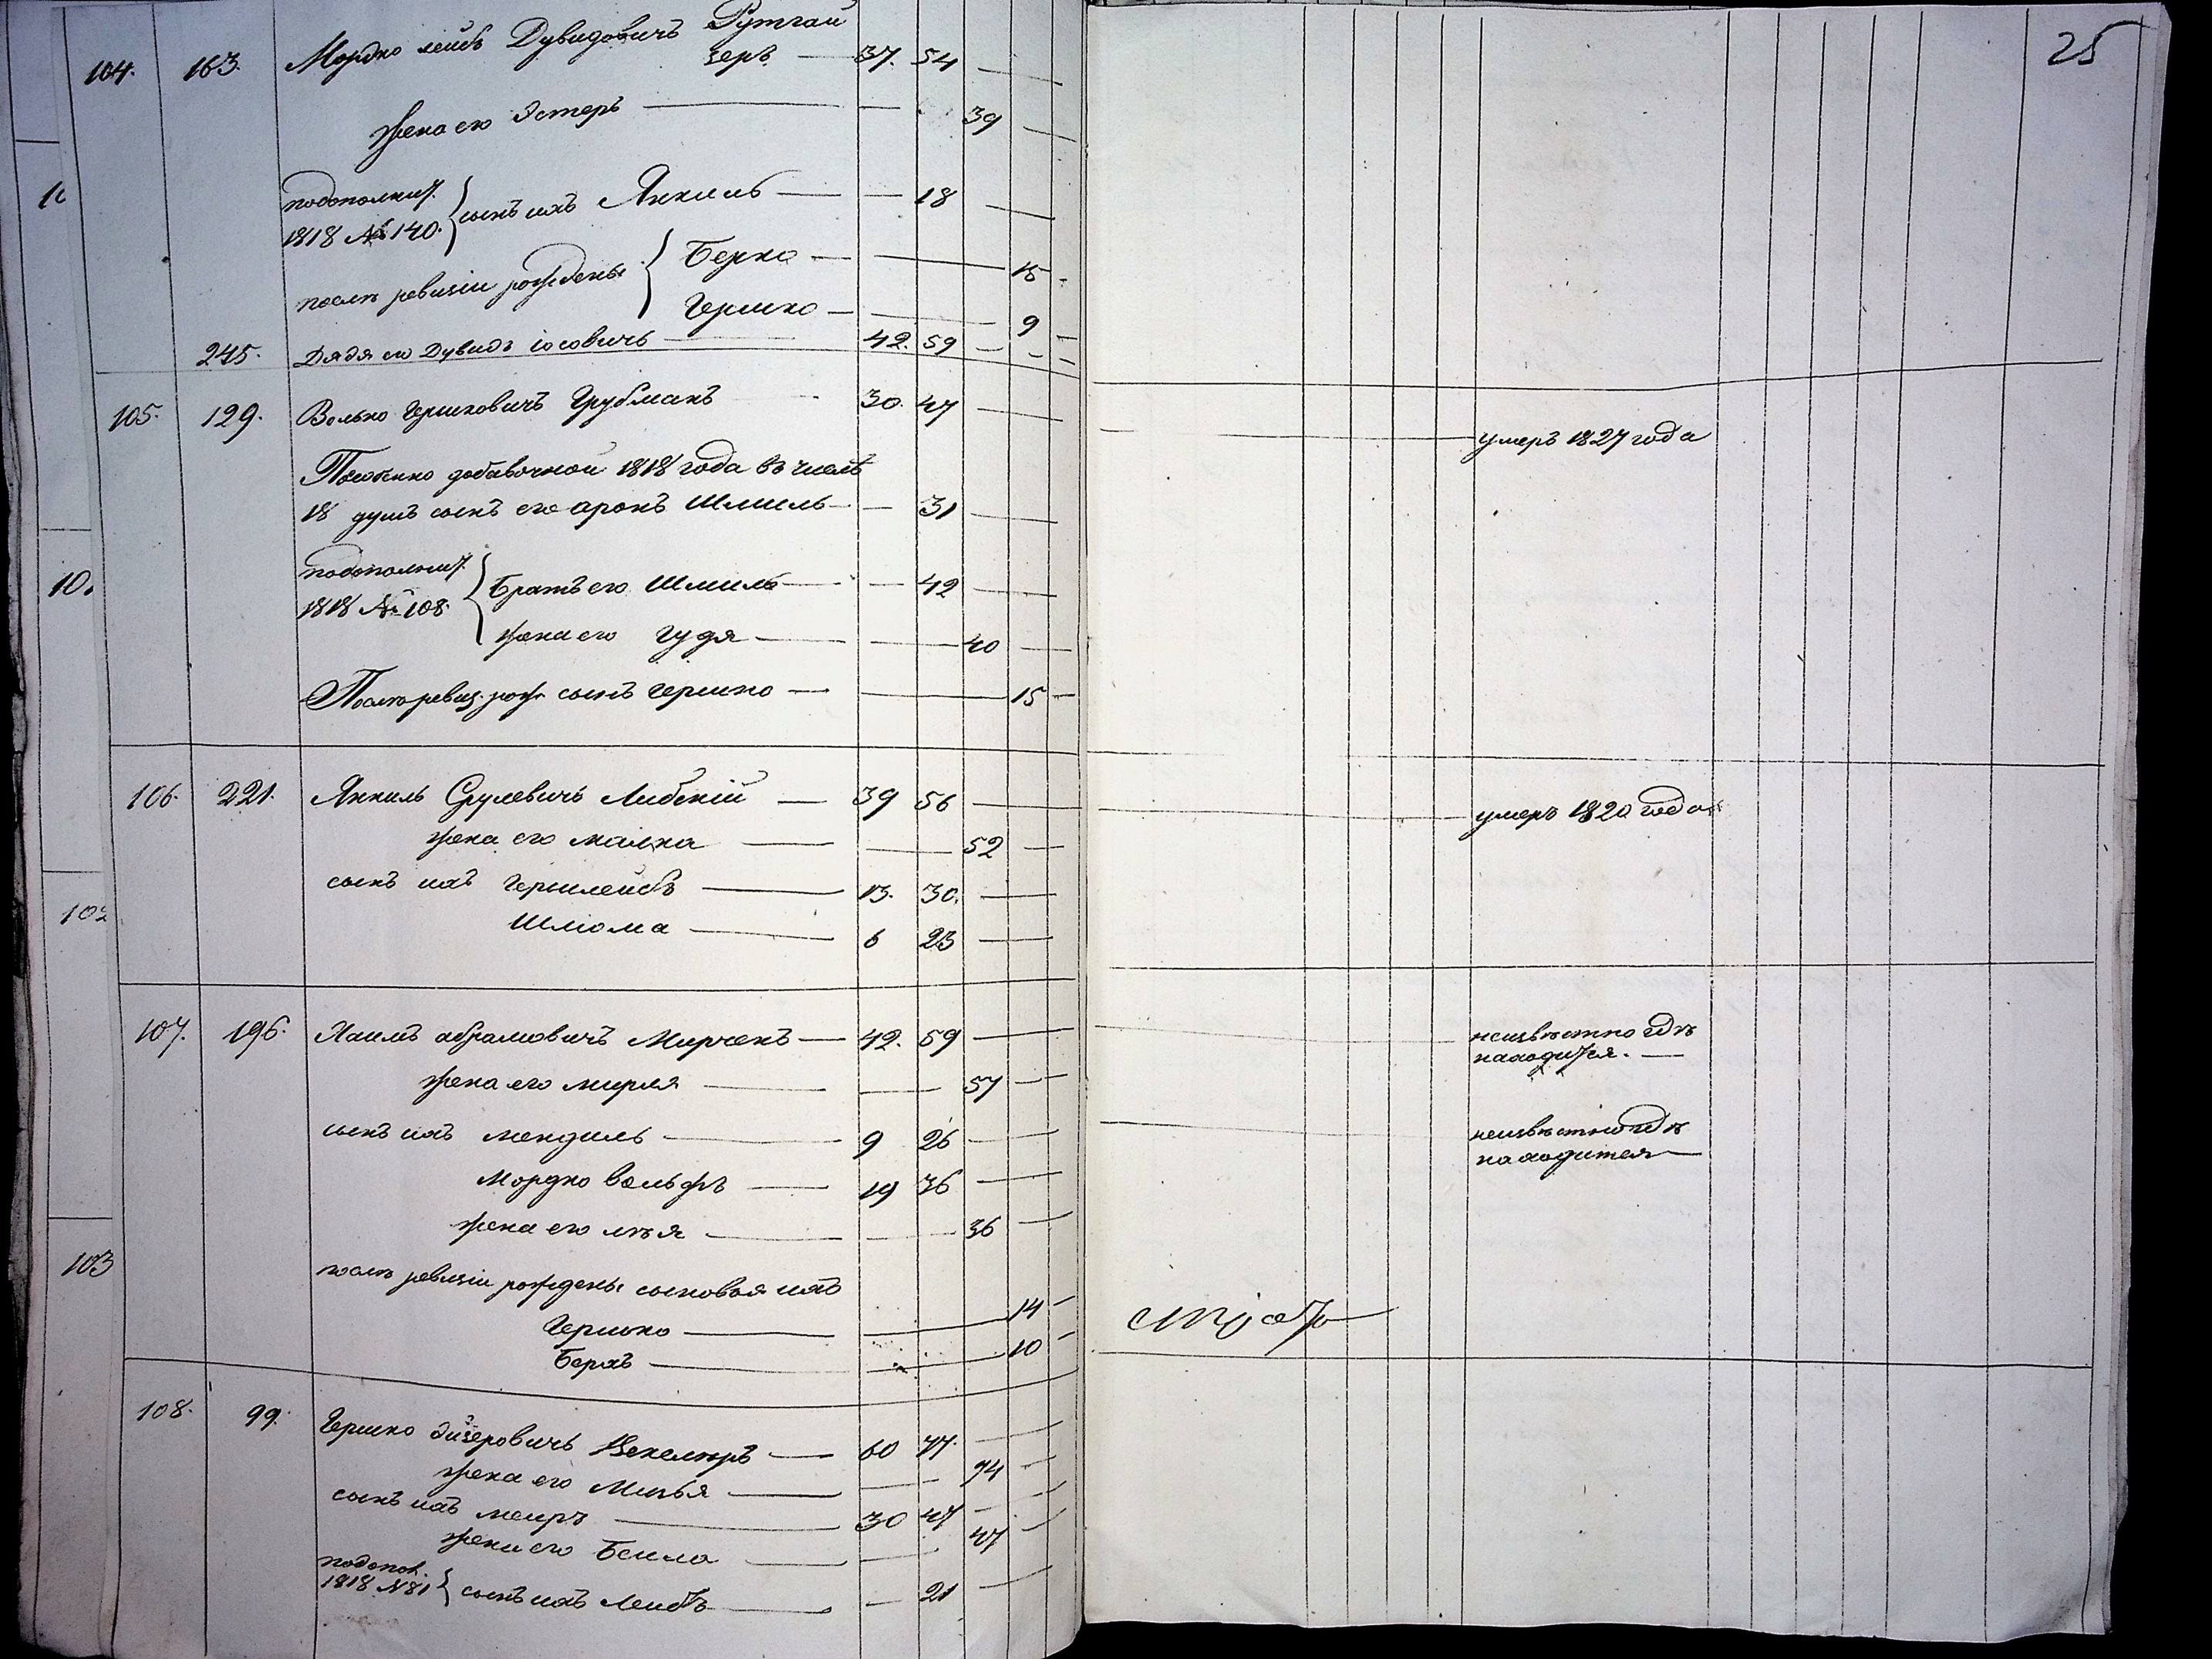 25
104. 163. Мордко лейбъ Дувидовичъ Рутгай
зеръ 37. 54
жена его Эстеръ 39
подополнит.
1818 № 140. сынъ ихъ Янкель 18
послѣ ревизіи рождены Берко 15
Гершко 9
245. Дядя его Дувидъ Іосовичъ 42. 59
105. 129. Волько Гершковичъ Грубманъ 30. 47 умеръ 1827 года
Поособенно добавочной 1818 года въ числѣ
18 душъ сынъ его аронъ Шмиль 31
подополнит.
1818 № 108. Братъ его Шмиль 42
жена его гудя 40
Послѣ ревиз. рож. сынъ гершко 15
106. 221. Янкиль Срулевичъ Либскій 39 56 умеръ 1820 года
жена его малка 52
сынъ ихъ Гершлейбъ 13. 30.
Шліома 6 23
107. 196. Хаимъ абрамовичъ Мирченъ 42. 59 неизвѣстно гдѣ
находится.
жена его мирля 57
сынъ ихъ мендиль 9 26 неизвѣстно гдѣ
находится
Мордко вольфъ 19 36
жена его лея 36
послѣ ревизіи рождены сыновья ихъ
Гершко 14
Берхъ 10
108. 99. Гершко Эйзеровичъ 60 77.
жена его 74
сынъ ихъ меиръ 30 47
жена его Беила 47
подопол.
1818 № 81 сынъ ихъ Лейбъ 21
10
10.
102
103